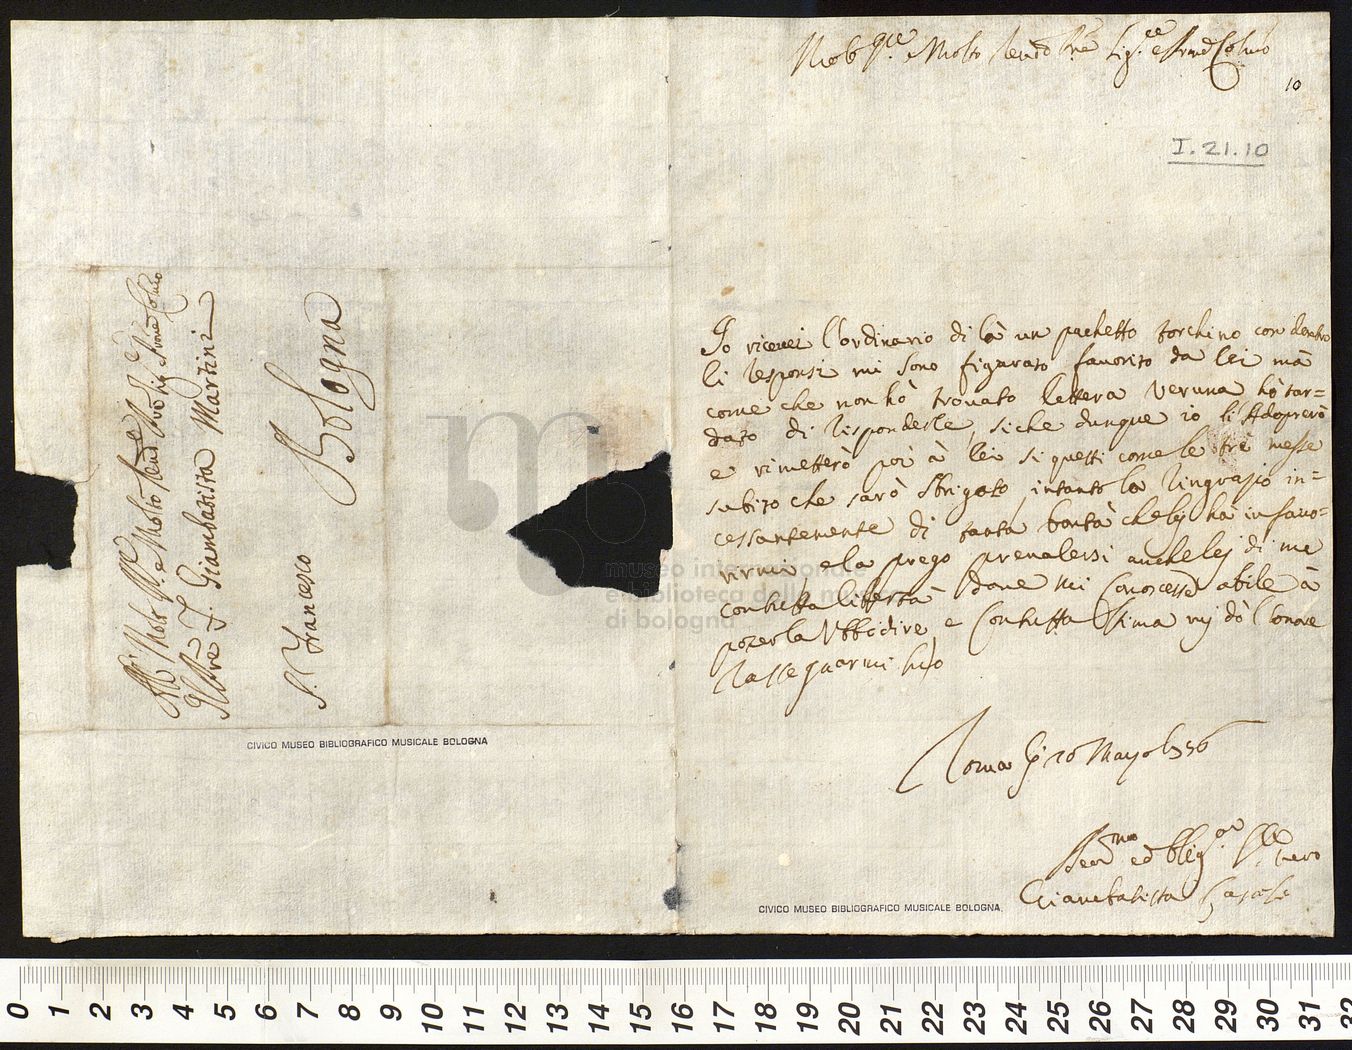 Molto Rev.do Pre Sig.re e Pron Col.mo
10
I. 21. 10
Io ricevei l'ordinario di là un pachetto torchino con dentro
li responsi mi sono figurato favorito da lei mà
come che non hò trovato lettera veruna hò tar=
dato di risponderle, siche dunque io li Adoprerò
e rimetterò poi à lei si questi come le tre messe
subito che sarò sbrigato, intanto la ringrazio in=
cessantemente di tanta bontà che lej hà in favo=
rirmi e la prego prevalersi anche lej di me
con tutta libertà dove mi conoscesse abile à
poterla Ubbidire, e con tutta stima mj dò l'onore
rassegnarmi
Roma
Giambatista Casali
CIVICO MUSEO BIBLIOGRAFICO MUSICALE BOLOGNA
Al Molto Rev.do
Giambatista Martini
S. Francesco
Bologna
CIVICO MUSEO BIBLIOGRAFICO MUSICALE BOLOGNA
museo internazionale
e biblioteca della musica
di bologna
0 1 2 3 4 5 6 7 8 9 10 11 12 13 14 15 16 17 18 19 20 21 22 23 24 25 26 27 28 29 30 31 32